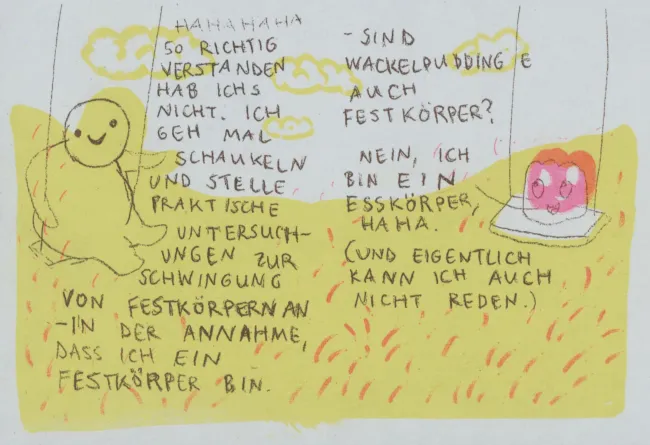 HAHAHAHA
SO RICHTIG
VERSTANDEN
HAB ICHS
NICHT. ICH
GEH MAL
SCHAUKELN
UND STELLE
PRAKTISCHE
UNTERSUCH-
UNGEN ZUR
SCHWINGUNG
VON FESTKÖRPERN AN
-IN DER ANNAHME,
DASS ICH EIN
FESTKÖRPER BIN.
- SIND
WACKELPUDDINGE
AUCH
FESTKÖRPER?
NEIN, ICH
BIN EIN
ESSKÖRPER,
HAHA.
(UND EIGENTLICH
KANN ICH AUCH
NICHT REDEN.)